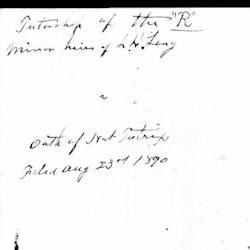 Tutorship of the "R"
Minor heirs of L. H. Long
Oath of Nat Tutrix
Filed Aug 23rd 1890